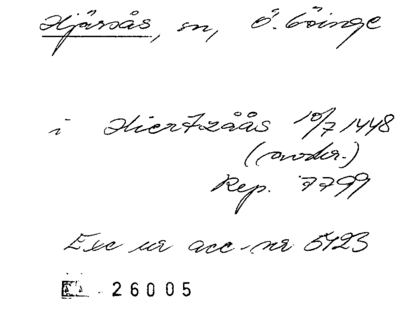 Hjärsås, sn, Ö. Göinge
i Hiertzåås 10/7 1448
(avskr.)
Rep. 7799
Exc ur acc-nr 5423
26005